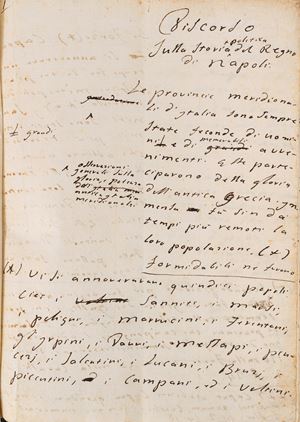 Discorso
Sulla Storia politica del Regno
di Napoli.
Le provincie meridiona-
li d'Italia sono sempre
state feconde di uomi-
ni e di memorabili avve-
nimenti. Esse parte-
ciparono della gloria
dell'antica Grecia.
tempi più remoti la
loro popolazione. (*)
formidabili ne furono
+ grandi
osservazioni
generali sulla
storia politica
dell'
antica Italia
meridionale
(*) Vi si annoveravano quindici popoli
cioè: i Sanniti, i Marsi,
i peligni, i marrucini, i Frentani,
gl'Irpini, i Dauni, i Messapi, i peu-
cezj, i Salentini, i Lucani, i Bruzj, i
picentini, i Campani, ed i Volsci.